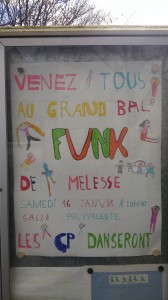 VENEZ À TOUS
AU GRAND BAL
FUNK
DE MELESSE
SAMEDI 16 JANVIER À
SALLE POLYVALENTE
LES CP DANSERONT